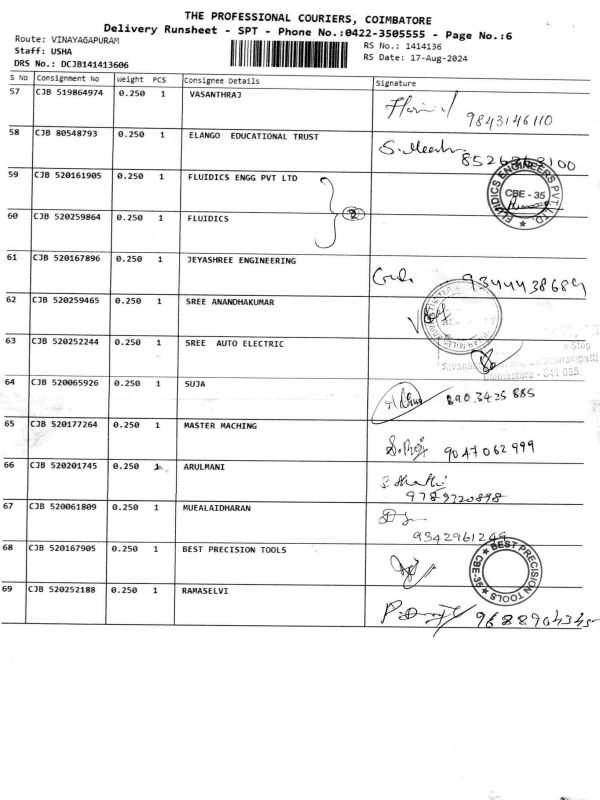 THE PROFESSIONAL COURIERS, COIMBATORE
Delivery Runsheet - SPT - Phone No.:0422-3505555 - Page No.:6
Route: VINAYAGAPURAM RS No.: 1414136
Staff: USHA RS Date: 17-Aug-2024
DRS No.: DCJB141413606
S No Consignment No Weight PCS Consignee Details Signature
57 CJB 519864974 0.250 1 VASANTHRAJ
9843146110
58 CJB 80548793 0.250 1 ELANGO EDUCATIONAL TRUST
59 CJB 520161905 0.250 1 FLUIDICS ENGG PVT LTD
FLUIDICS ENGINEERS PVT. LTD.
CBE - 35
2
60 CJB 520259864 0.250 1 FLUIDICS
61 CJB 520167896 0.250 1 JEYASHREE ENGINEERING
9344438689
62 CJB 520259465 0.250 1 SREE ANANDHAKUMAR
63 CJB 520252244 0.250 1 SREE AUTO ELECTRIC
Stop
Coimbatore - 641 035.
64 CJB 520065926 0.250 1 SUJA
8903425885
65 CJB 520177264 0.250 1 MASTER MACHING
9047062999
66 CJB 520201745 0.250 1 ARULMANI
9789720898
67 CJB 520061809 0.250 1 MUEALAIDHARAN
9342961249
68 CJB 520167905 0.250 1 BEST PRECISION TOOLS
BEST PRECISION TOOLS
CBE-35
69 CJB 520252188 0.250 1 RAMASELVI